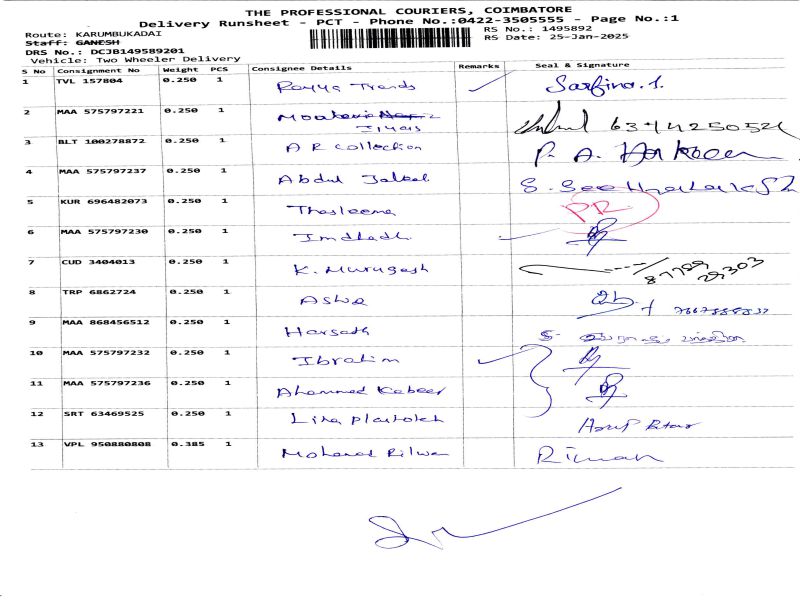 THE PROFESSIONAL COURIERS, COIMBATORE
Delivery Runsheet - PCT - Phone No.:0422-3505555 - Page No.:1
Route: KARUMBUKADAI RS No.: 1495892
Staff: GANESH RS Date: 25-Jan-2025
DRS No.: DCJB149589201
Vehicle: Two Wheeler Delivery
S No Consignment No Weight PCS Consignee Details Remarks Seal & Signature
1 TVL 157804 0.250 1 Trends Sarfina.
2 MAA 575797221 0.250 1
3 BLT 100278872 0.250 1 A R Collection P. A.
4 MAA 575797237 0.250 1 Abdul Jaleel S.
5 KUR 696482073 0.250 1 Thasleema PR
6 MAA 575797230 0.250 1 Imdhadh
7 CUD 3404013 0.250 1 K. Murugesh
8 TRP 6862724 0.250 1
9 MAA 868456512 0.250 1 Harsath
10 MAA 575797232 0.250 1 Ibrahim
11 MAA 575797236 0.250 1 Ahammed Kabeer
12 SRT 63469525 0.250 1
13 VPL 950880808 0.385 1 Rilwan